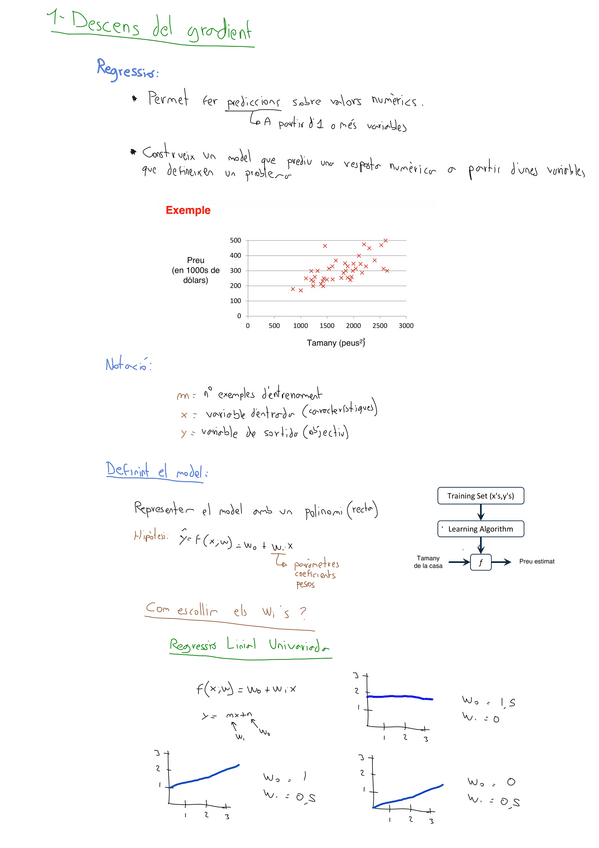 1- Descens del gradient
Regressió:
• Permet fer prediccions sobre valors numèrics.
↳ A partir d'1 o més variables
• Construeix un model que prediu una resposta numèrica a partir d'unes variables
que defineixen un problema
Exemple
Preu
(en 1000s de
dólars)
500
400
300
200
100
0
0 500 1000 1500 2000 2500 3000
Tamany (peus²)
Notació:
m = nº exemples d'entrenament
x = variable d'entrada (característiques)
y = variable de sortida (objectiu)
Definint el model:
Representem el model amb un polinomi (recta)
Hipòtesi: ŷ = f(x,w) = w₀ + w₁x
↳ paràmetres
coeficients
pesos
Training Set (x's,y's)
Learning Algorithm
Tamany
de la casa
f
Preu estimat
Com escollir els wᵢ's ?
Regressió Linial Univariada
f(x,w) = w₀ + w₁x
y = mx+n
w₁ w₀
3
2
1
1 2 3
w₀ = 1,5
w₁ = 0
3
2
1
1 2 3
w₀ = 1
w₁ = 0,5
3
2
1
1 2 3
w₀ = 0
w₁ = 0,5